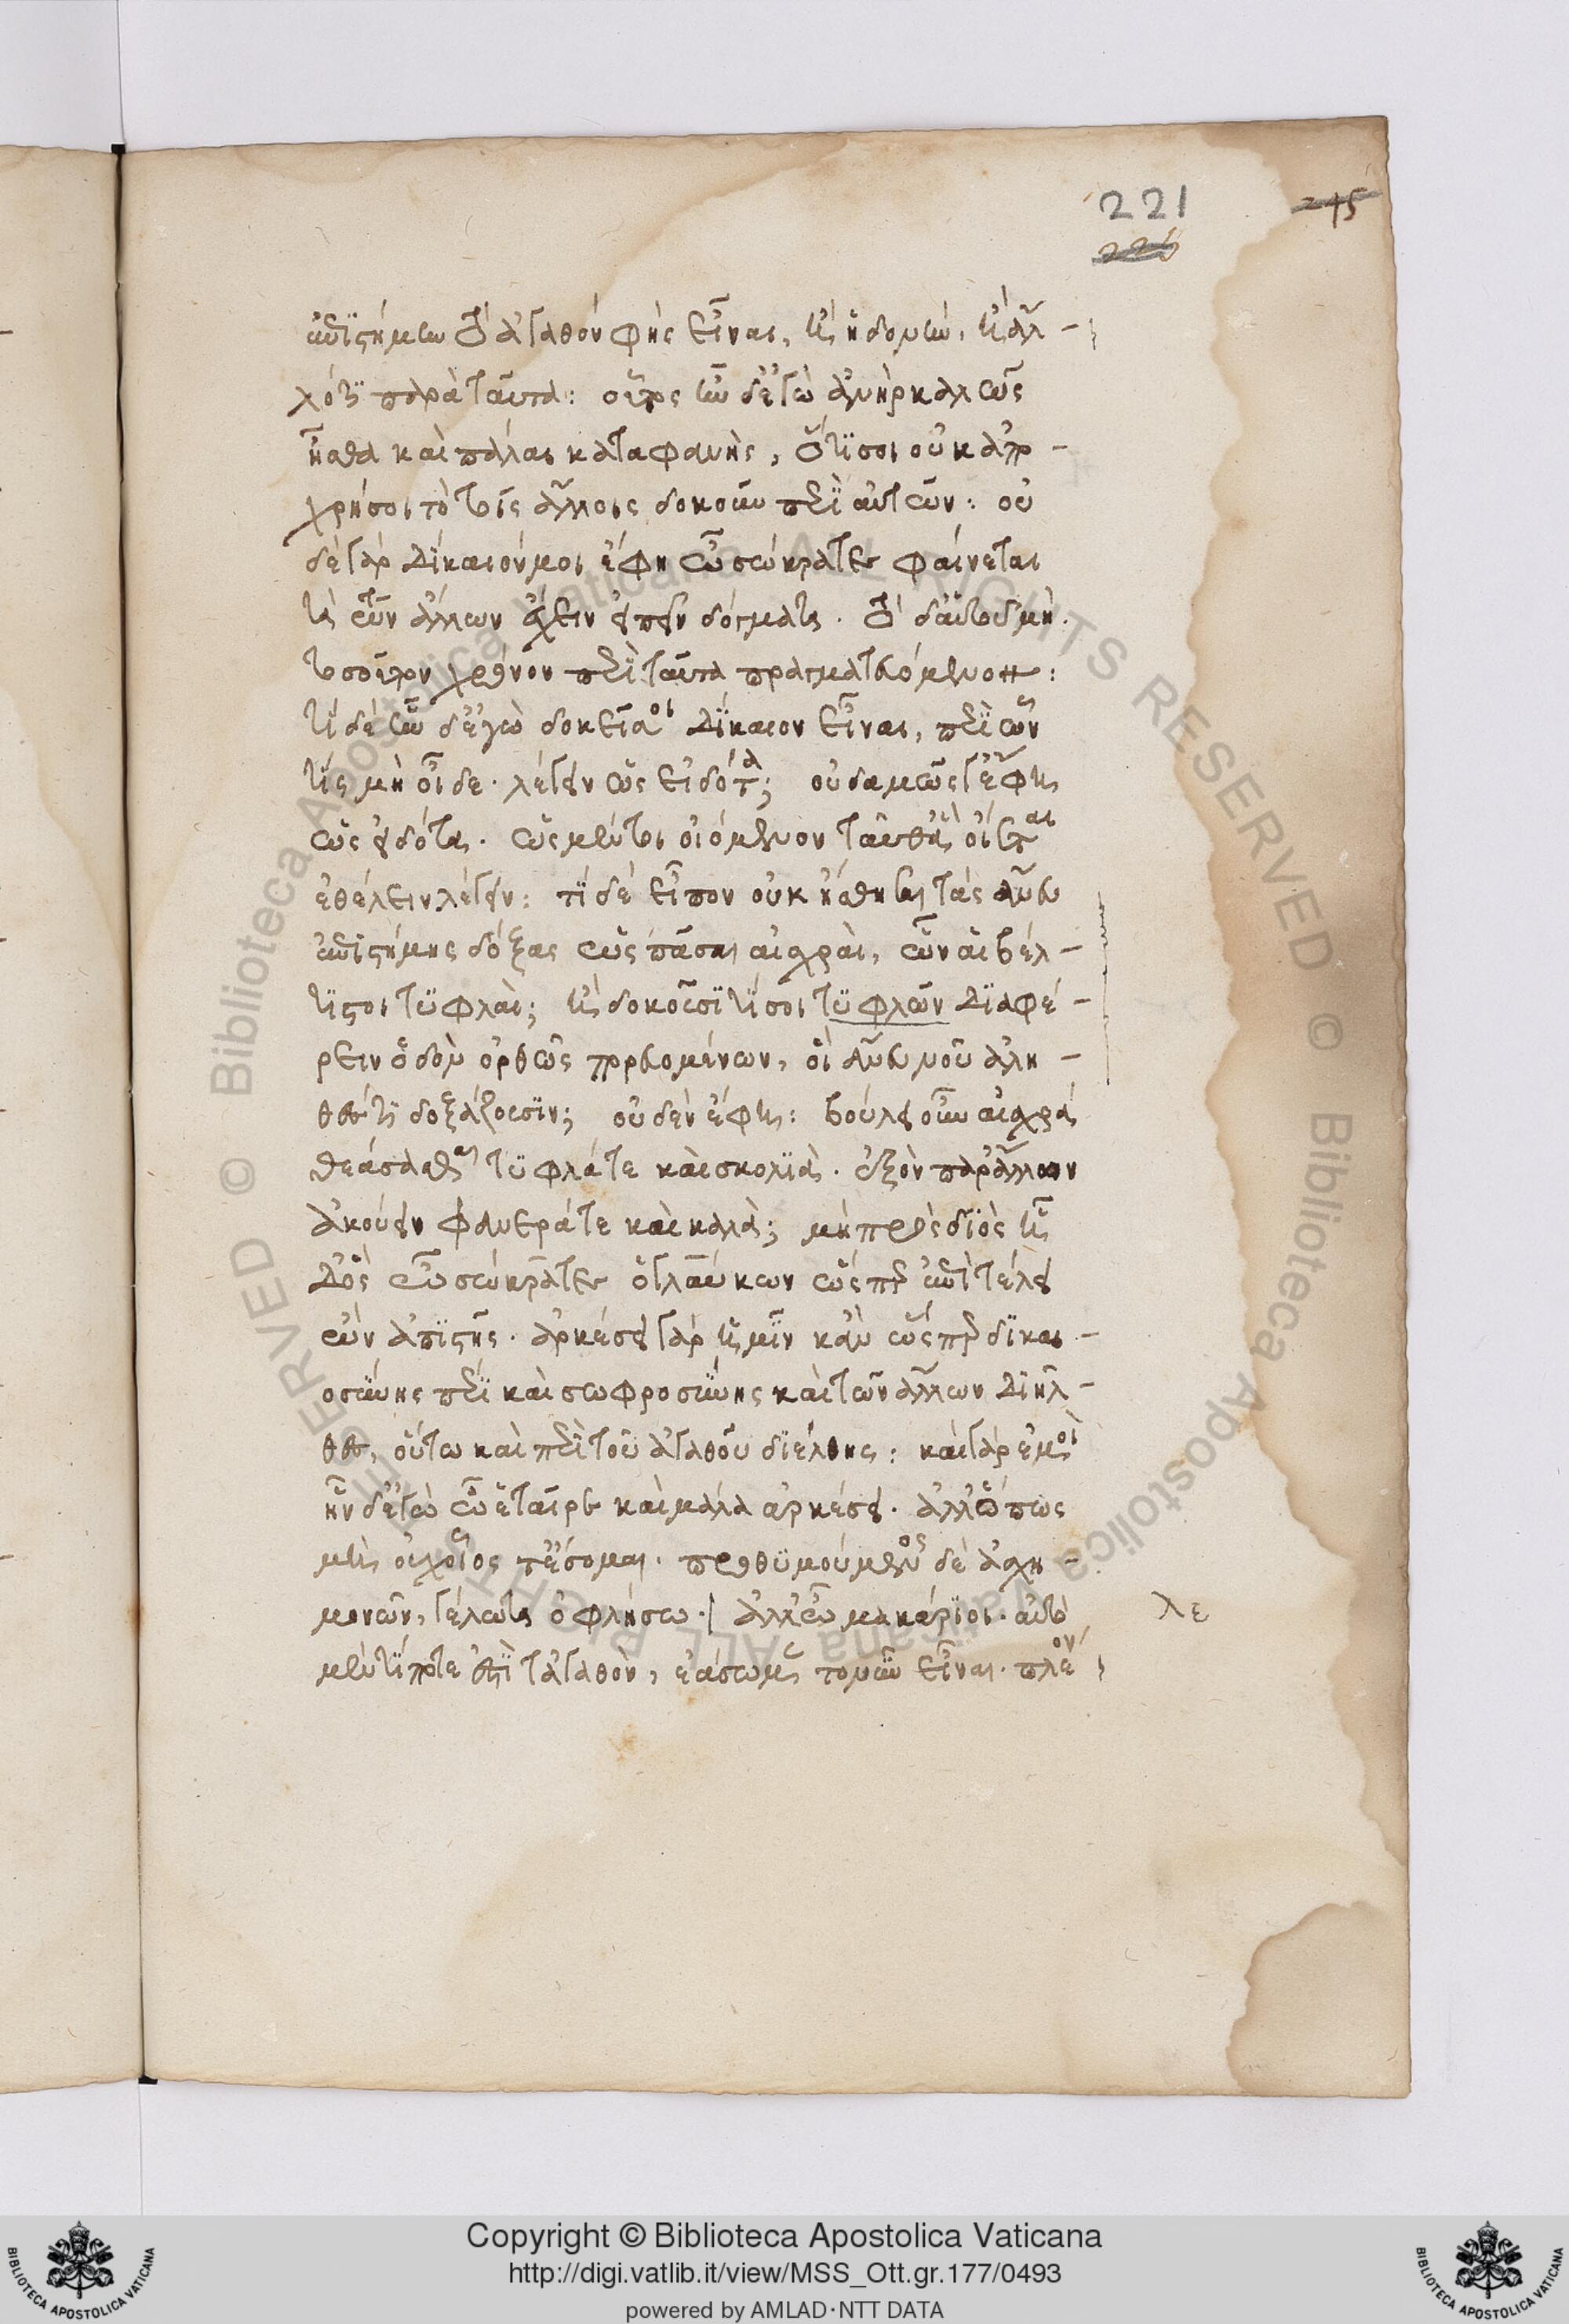 221
245
ἐπιστήμην τὸ ἀγαθόν φῂς εἶναι, ἢ ἡδονήν, ἢ ἄλ-
λό τι παρὰ ταῦτα: οὗτος ἦν δ' ἐγὼ ἀνὴρ καλῶς
ἦσθα καὶ πάλαι καταφανὴς, ὅτι σοι οὐκ ἀπο-
χρήσοι τὸ τοῖς ἄλλοις δοκοῦν περὶ αὐτῶν: οὐ
δὲ γὰρ δίκαιόν μοι ἔφη ὦ σώκρατες φαίνεται
τὰ τῶν ἄλλων ἔχειν εἰπεῖν δόγματα. τὸ δ' αὑτοῦ μὴ.
τοσοῦτον χρόνον περὶ ταῦτα πραγματευόμενον:
τί δὲ ἦν δ' ἐγὼ δοκεῖ σοι δίκαιον εἶναι, περὶ ὧν
τίς μὴ οἶδε. λέγειν ὡς εἰδότα; οὐδαμῶς γ' ἔφη
ὡς εἰδότα. ὡς μέντοι οἰόμενον ταῦθ' ἃ οἴεται
ἐθέλειν λέγειν: τί δὲ εἶπον οὐκ ᾔσθησαι τὰς ἄνευ
ἐπιστήμης δόξας ὡς πᾶσαι αἰσχραὶ, ὧν αἱ βέλ-
τισται τυφλαὶ; ἢ δοκοῦσί τί σοι τυφλῶν διαφέ-
ρειν ὁδὸν ὀρθῶς πορευομένων, οἱ ἄνευ νοῦ ἀλη-
θές τι δοξάζουσιν; οὐδὲν ἔφη: βούλει οὖν αἰσχρά
θεάσασθαι τυφλά τε καὶ σκολιὰ. ἐξὸν παρ' ἄλλων
ἀκούειν φανερά τε καὶ καλὰ; μὴ πρὸς διὸς ἦ
δ' ὃς ὦ σώκρατες ὁ γλαύκων ὥσπερ ἐπὶ τέλει
ὢν ἀποστῇς. ἀρκέσει γὰρ ἡμῖν κἂν ὥσπερ δικαι-
οσύνης πέρι καὶ σωφροσύνης καὶ τῶν ἄλλων διῆλ-
θες, οὕτω καὶ περὶ τοῦ ἀγαθοῦ διέλθῃς: καὶ γὰρ ἐμοὶ
ἦν δ' ἐγὼ ὦ ἑταῖρε καὶ μάλα ἀρκέσει. ἀλλ' ὅπως
μὴ οὐχ οἷός τ' ἔσομαι. προθυμούμενος δὲ ἀσχη-
μονῶν, γέλωτα ὀφλήσω. ἀλλ' ὦ μακάριοι. αὐτὸ
λε
μὲν τί ποτε ἐστὶ τἀγαθὸν, ἐάσωμεν τονῦν εἶναι. πλέον
Copyright © Biblioteca Apostolica Vaticana
http://digi.vatlib.it/view/MSS_Ott.gr.177/0493
powered by AMLAD·NTT DATA
BIBLIOTECA APOSTOLICA VATICANA
BIBLIOTECA APOSTOLICA VATICANA